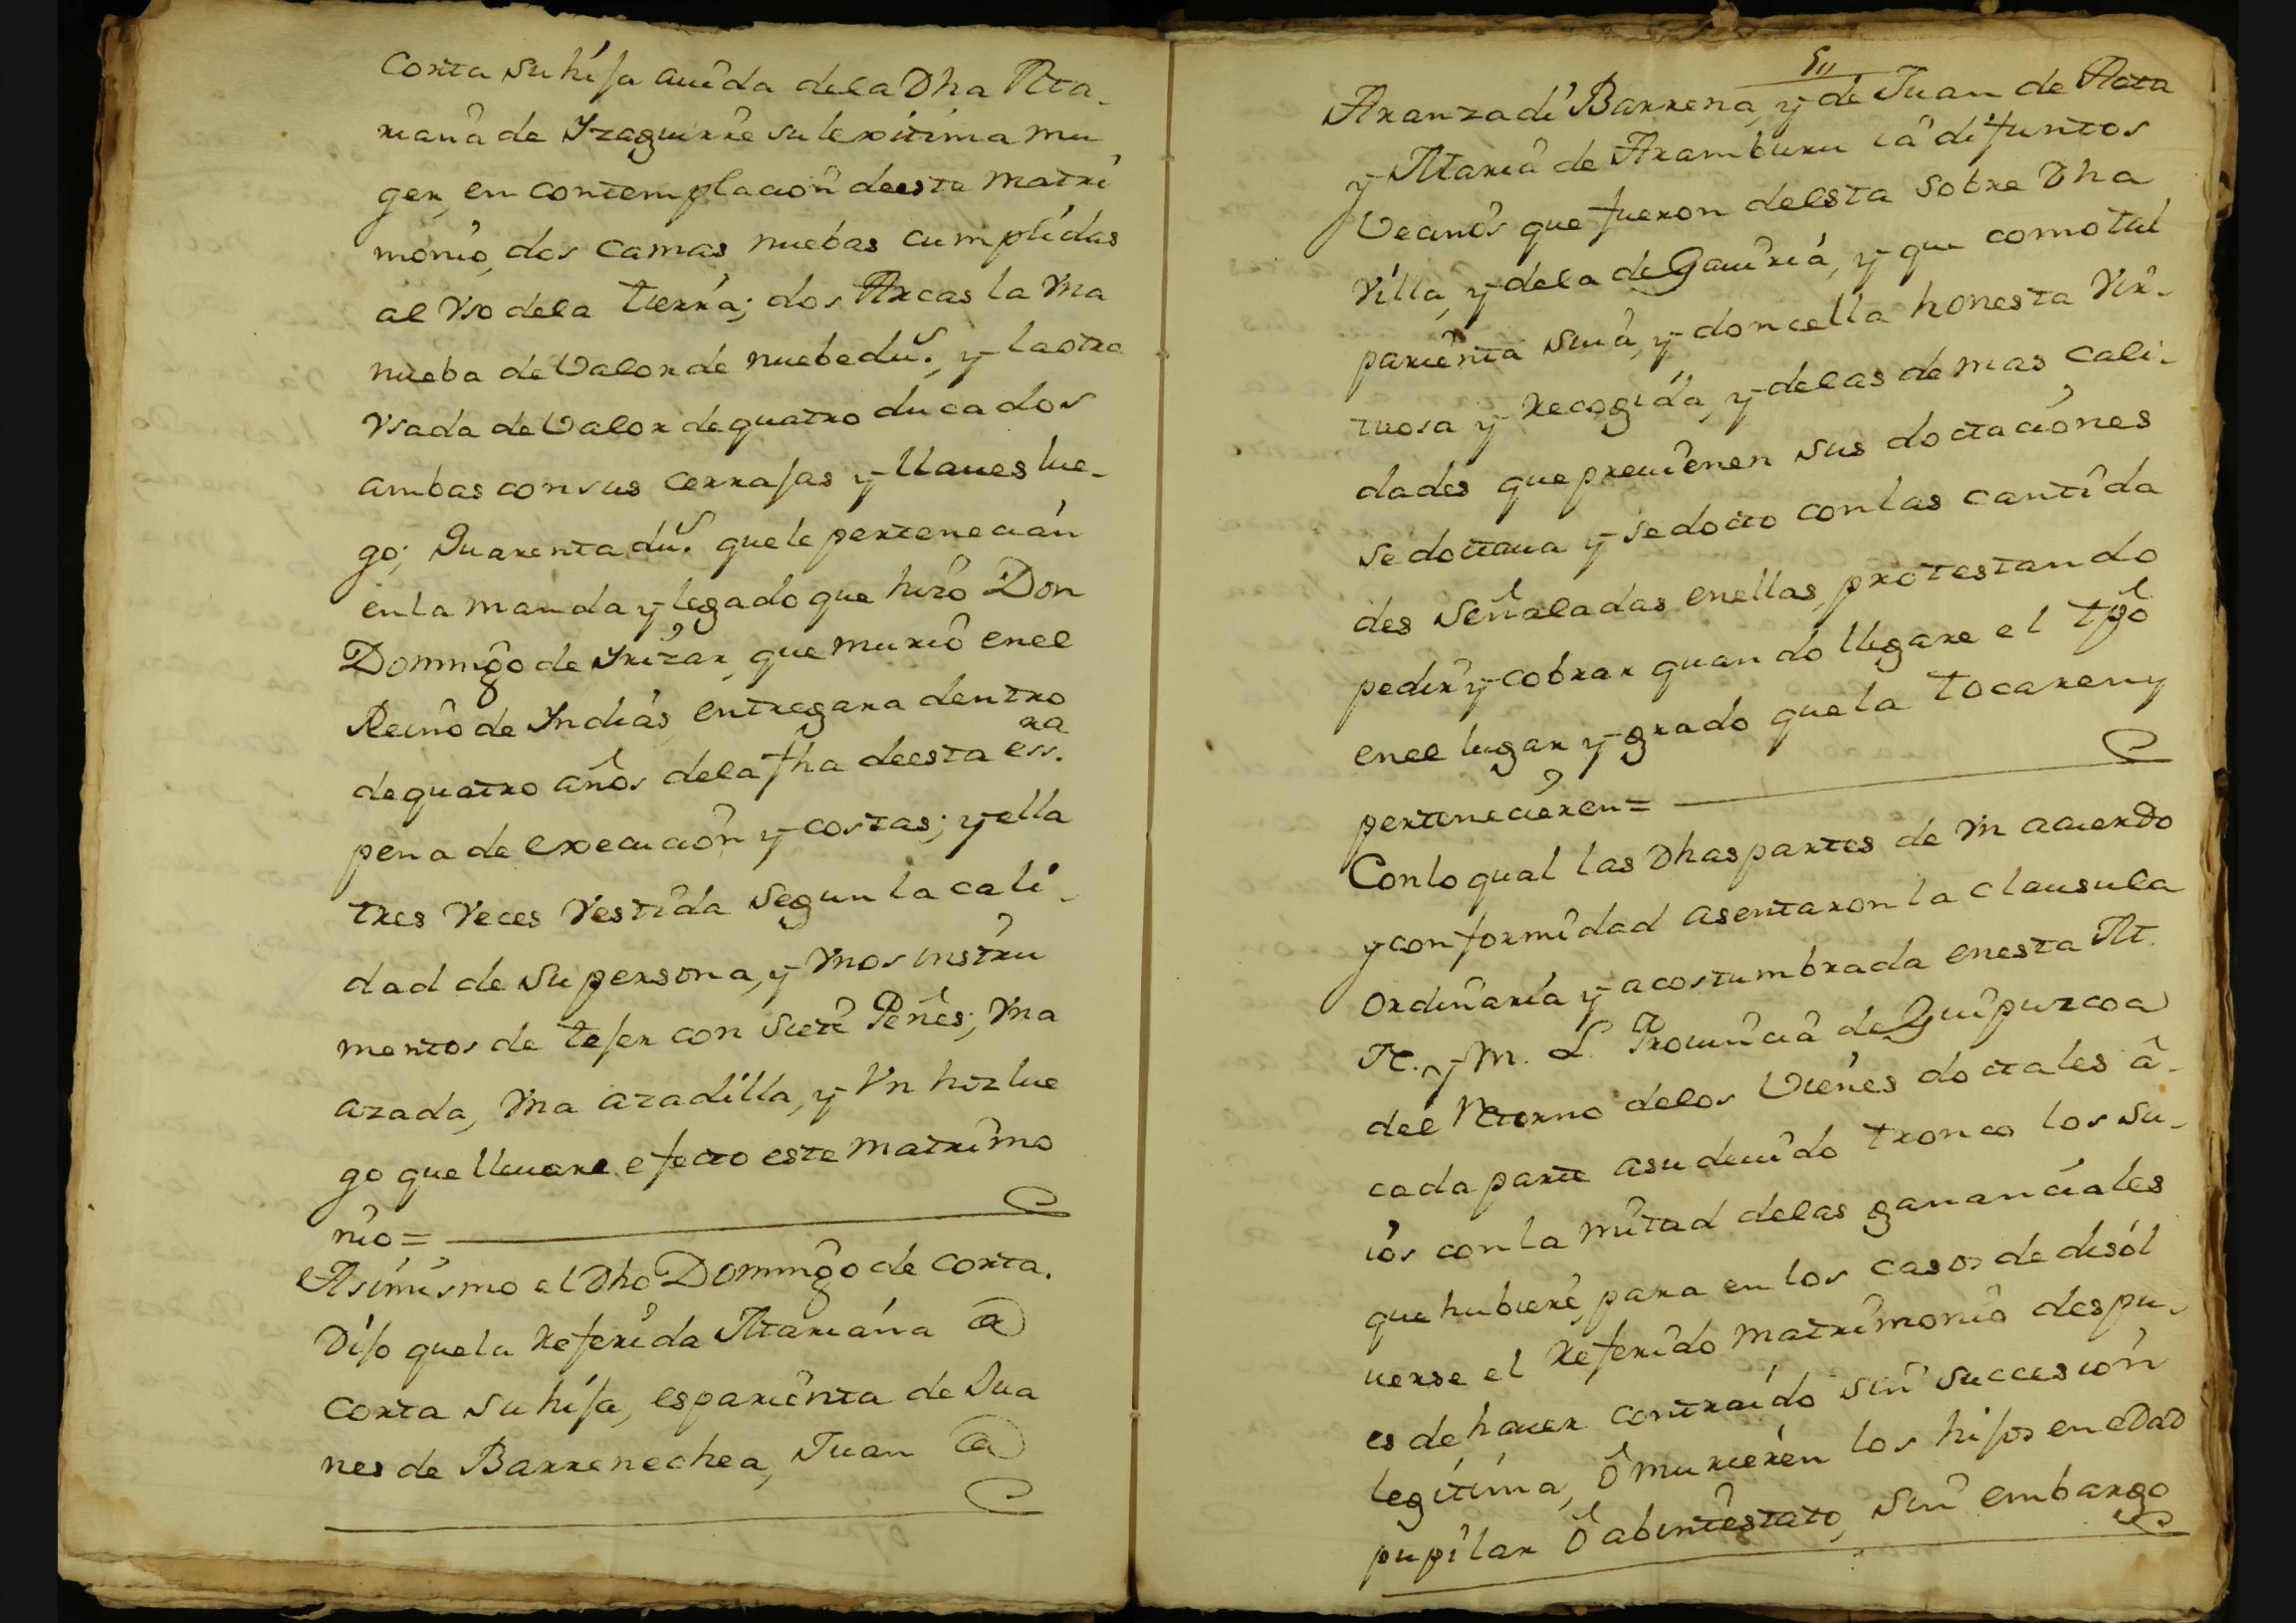 Corta su hija auida dela Dha Ma-
riana de Yzaguirre su lexitima mu
ger, en contemplacion deeste matri
monio, dos camas nuebas cumplidas
al vso dela tierra; dos Arcas la vna
nueba de Valor de nuebe dus. y la otra
vsada de Valor de quatro ducados
ambas con sus cerrajas y llaues lue-
go; Quarenta dus. que le pertenecian
en la manda y legado que hizo Don
Domingo de Yrizar, que murio en el
Reino de Yndias, entregara dentro
de quatro años dela fha deesta essra.
pena de execucion y costas; y ella
tres Veces Vestida segun la cali-
dad de su persona, y vnos instru
mentos de tejer con siete Peñes; vna
azada, vna azadilla, y Vn hoz lue
go que lleuare efecto este matrimo
nio =
Asimismo el Dho Domingo de Corta.
Dijo que la referida Mariana @
Corta su hija, es parienta de Jua
nes de Barrenechea, Juan @
511
Aranzadi Barrena, y de Juan de Aeta
y Maria de Aramburu ia difuntos
Vecinos que fueron deesta sobre Dha
Villa, y dela de Gauiria, y que como tal
parienta suia, y doncella honesta Vir-
tuosa y recogida, y delas demas cali-
dades que preuienen sus doctaciones
se doctaua y se docto con las cantida
des señaladas en ellas, protestando
pedir y cobrar quando llegare el tpo
en el lugar y grado que la tocaren y
pertenecieren =
Con lo qual las Dhas partes de vn acuerdo
y conformidad asentaron la clausula
ordinaria y acostumbrada en esta M.
N. y M. L. Prouincia de Guipuzcoa
del retorno delos Vienes doctales â
cada parte a su deuido tronco los su-
ios con la mitad delas gananciales
que hubiere, para en los casos de disol
uerse el referido matrimonio despu-
es de hauer contraido sin succesion
legitima, ô murieren los hijos en edad
pupilar ô abintestato, sin embargo